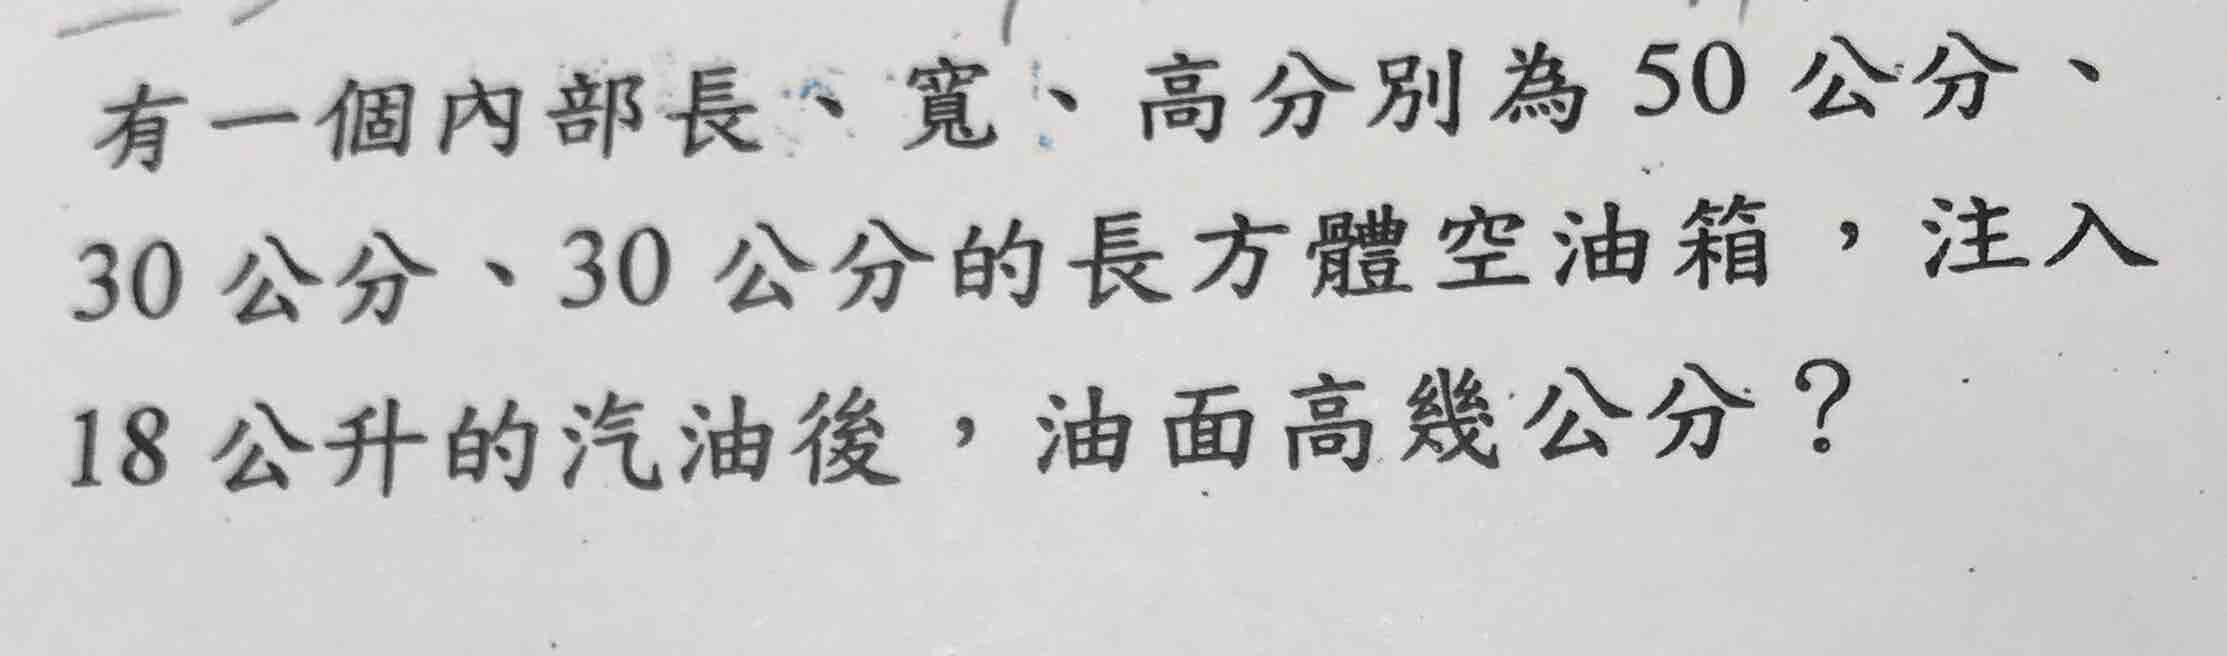 有一個內部長、寬、高分別為 50 公分、
30 公分、30 公分的長方體空油箱，注入
18 公升的汽油後，油面高幾公分？